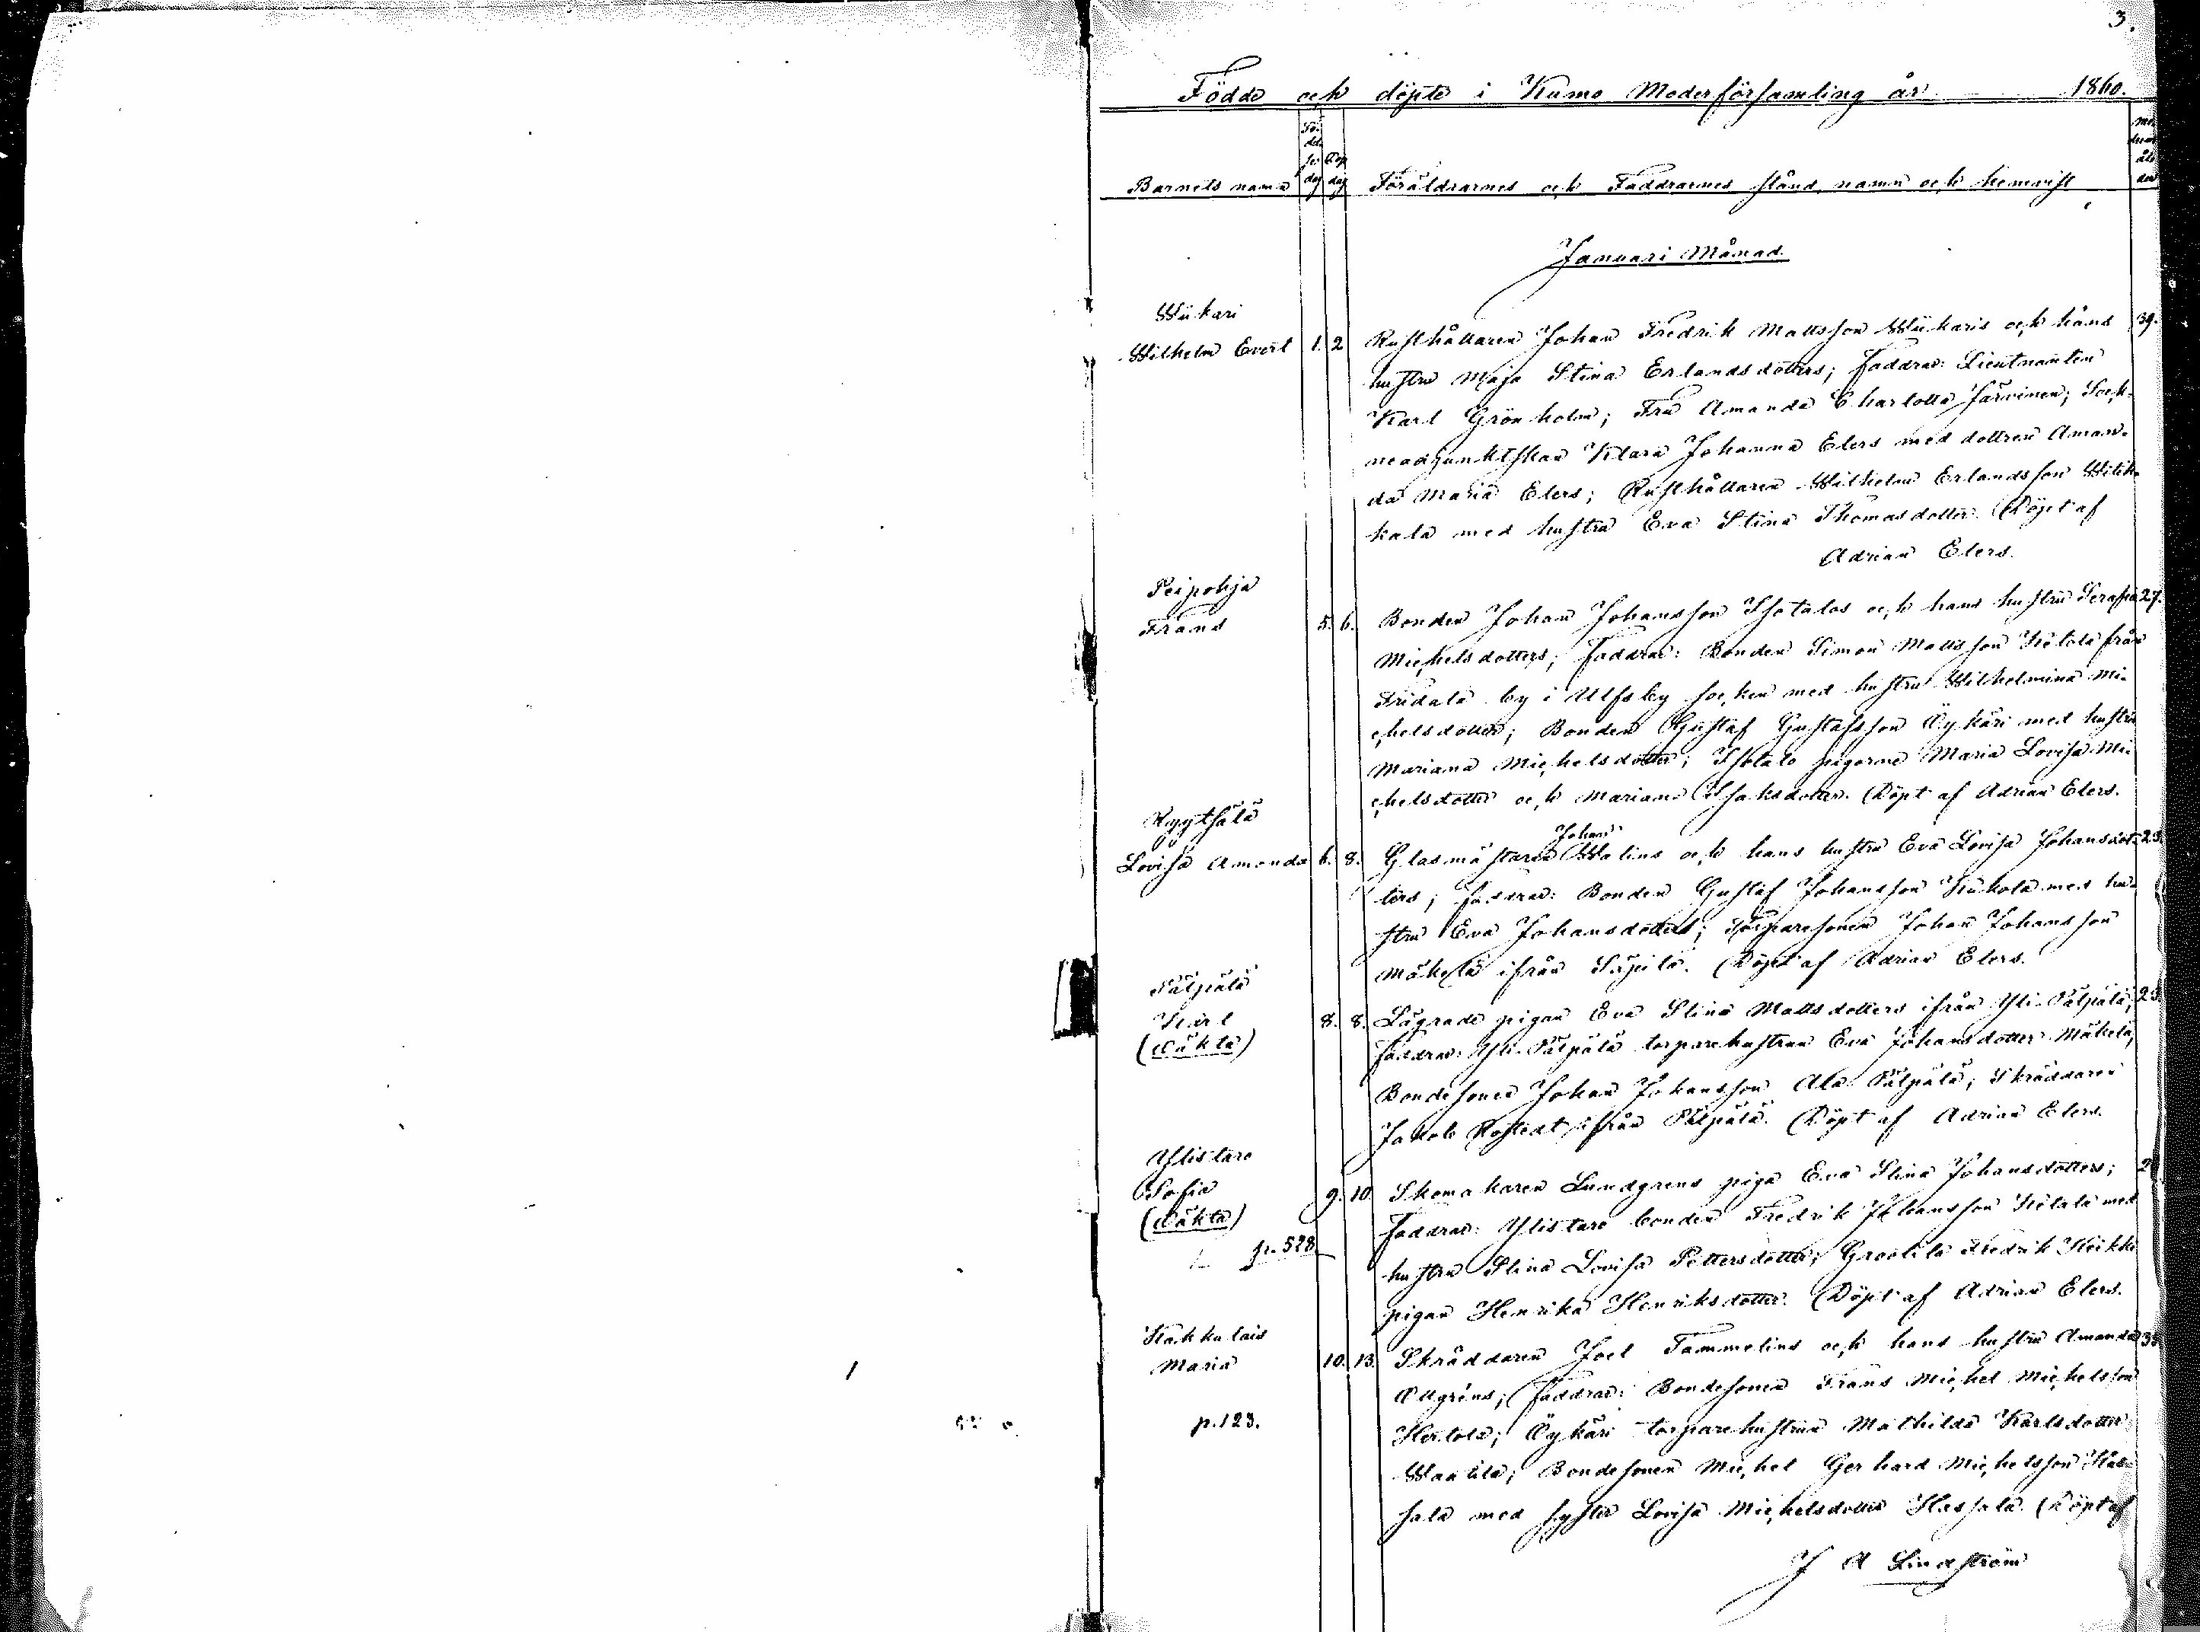 3.
Födde och döpte i Kumo Moderförsamling år 1860.
Barnets namn Fö-delsedag Döpdag Föräldrarnes och Faddrarnes stånd, namn och hemvist Modrens ålder
Januari Månad
Wiikari
Wilhelm Evert 1. 2 Rusthållaren Johan Fredrik Mattsson Wiikaris och hans 39.
hustru Maja Stina Erlandsdotters; faddrar: Lieutnanten
Karl Grönholm; Fru Amanda Charlotta Järvinen; Sock-
neadjunktskan Klara Johanna Elers med dottren Aman-
da Maria Elers; Rusthållaren Wilhelm Erlandsson Wilik-
kala med hustru Eva Stina Thomasdotter. Döpt af
Adrian Elers.
Peipohja
Frans 5. 6. Bonden Johan Johansson Isotalos och hans hustru Serafia 27.
Michelsdotters; faddrar: Bonden Simon Mattsson Kätola från
Fridala by i Ulfsby socken med hustru Wilhelmina Mi-
chelsdotter; Bonden Gustaf Gustafsson Äykäri med hustru
Mariana Michelsdotter; Isotalo pigorne Maria Lovisa Mi-
chelsdotter och Mariana Isaksdotter. Döpt af Adrian Elers.
Ryytsälä
Lovisa Amanda 6. 8. Glasmästaren Johan Walins och hans hustru Eva Lovisa Johansdot- 23.
ters; faddrar: Bonden Gustaf Johansson Kukola med hu-
stru Eva Johansdotter; Torparesonen Johan Johansson
Mäkelä ifrån Säpilä. Döpt af Adrian Elers.
Pälpälä
Karl 8. 8. Lägrade pigan Eva Stina Mattsdotters ifrån Yli-Pälpälä; 23.
(oäkta) faddrar: Yli-Pälpälä torparehustrun Eva Johansdotter Mäkelä,
Bondesonen Johan Johansson Ala Pälpälä; Skräddaren
Jakob Rostedt ifrån Pälpälä. Döpt af Adrian Elers.
Ylistaro
Sofia 9. 10. Skomakaren Lundgrens piga Eva Stina Johansdotters;
(oäkta) faddrar: Ylistaro bonden Fredrik Johansson Kätala med
p. 528 hustru Stina Lovisa Pettersdotter; Groolila Fredrik Heikki
pigan Henrika Henriksdotter. Döpt af Adrian Elers.
Kakkulais
Maria 10. 13. Skräddaren Joel Tammelins och hans hustru Amanda
Ottgréns; faddrar: Bondesonen Frans Michel Michelsson
p. 123. Hertola; Äykäri torparehustrun Mathilda Karlsdotter
Waatila; Bondesonen Michel Gerhard Michelsson Has-
sala med syster Lovisa Michelsdotter Hassala. Döpt af
J A Lindström